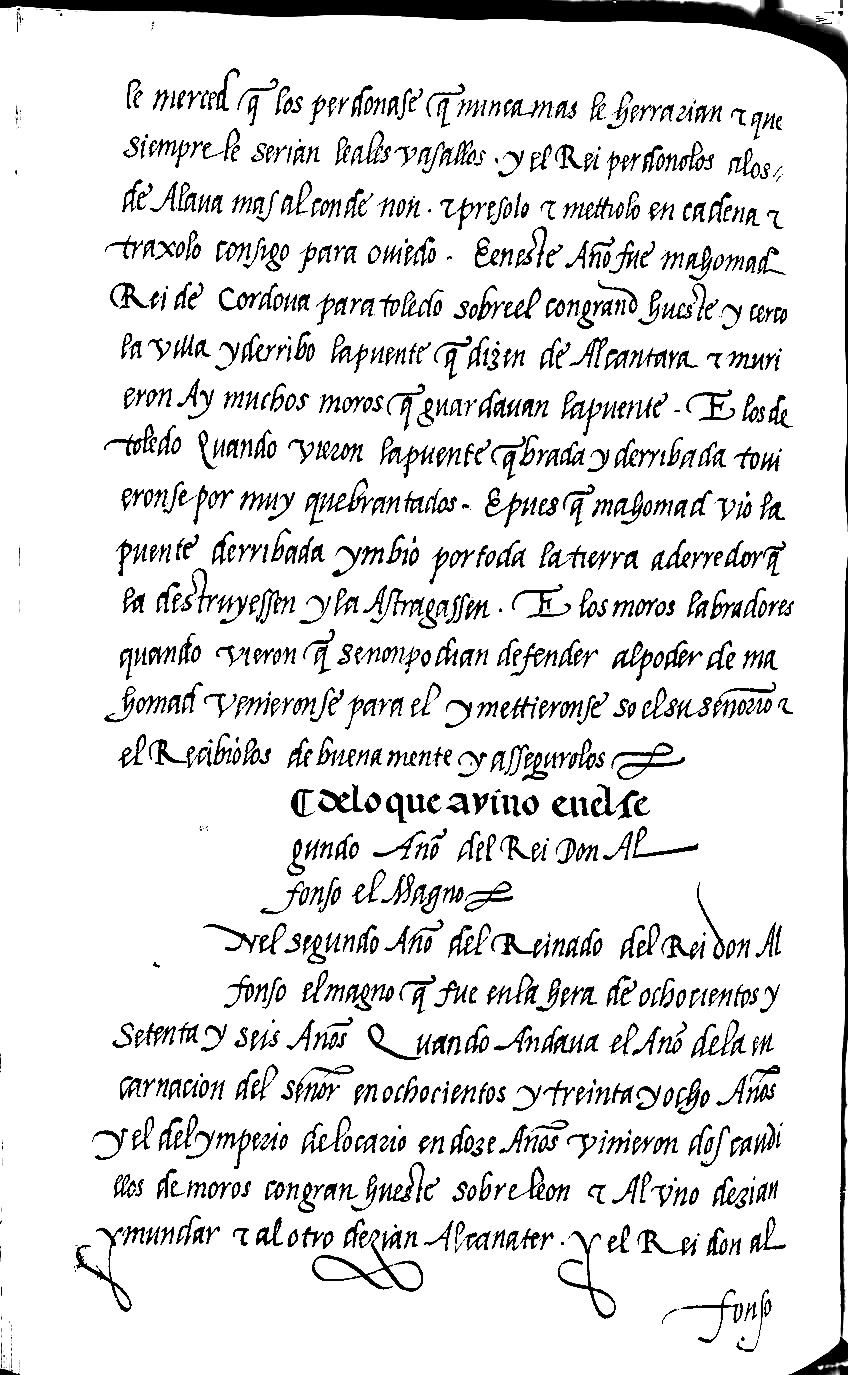 le merced q̃ los perdonase q̃ nunca mas le herrarian ⁊ que
siempre le serian leales vasallos . y el Rei perdonolos alos
de Alaua mas al conde non . ⁊ presolo ⁊ mettiolo en cadena ⁊
traxolo consigo para ouiedo . E eneste Año fue mahomad
Rei de Cordoua para toledo sobreel congrand hueste y cerco
la villa y derribo la puente q̃ dizen de Alcantara ⁊ muri
eron Ay muchos moros q̃ guardauan la puente . E los de
toledo Quando vieron la puente q̃brada y derribada toui
eronse por muy quebrantados . E pues q̃ mahomad vio la
puente derribada ymbio por toda la tierra aderredor q̃
la destruyessen y la Astragassen . E los moros labradores
quando vieron q̃ se non podian defender al poder de ma
homad venieronse para el y mettieronse so el su señorio ⁊
el Recibiolos de buena mente y assegurolos
¶ de lo que avino enel se
gundo Año del Rei Don Al
fonso el Magno
Nel segundo Año del Reinado del Rei don Al
fonso el magno q̃ fue enla hera de ochocientos y
setenta y seis Años Quando Andaua el Año dela en
carnacion del señor en ochocientos y treinta y ocho Años
y el del ymperio de locario en doze Años vinieron dos caudi
llos de moros congran hueste sobre leon ⁊ Al vno dezian
ymundar ⁊ al otro dezian Alcanater . y el Rei don al
fonso